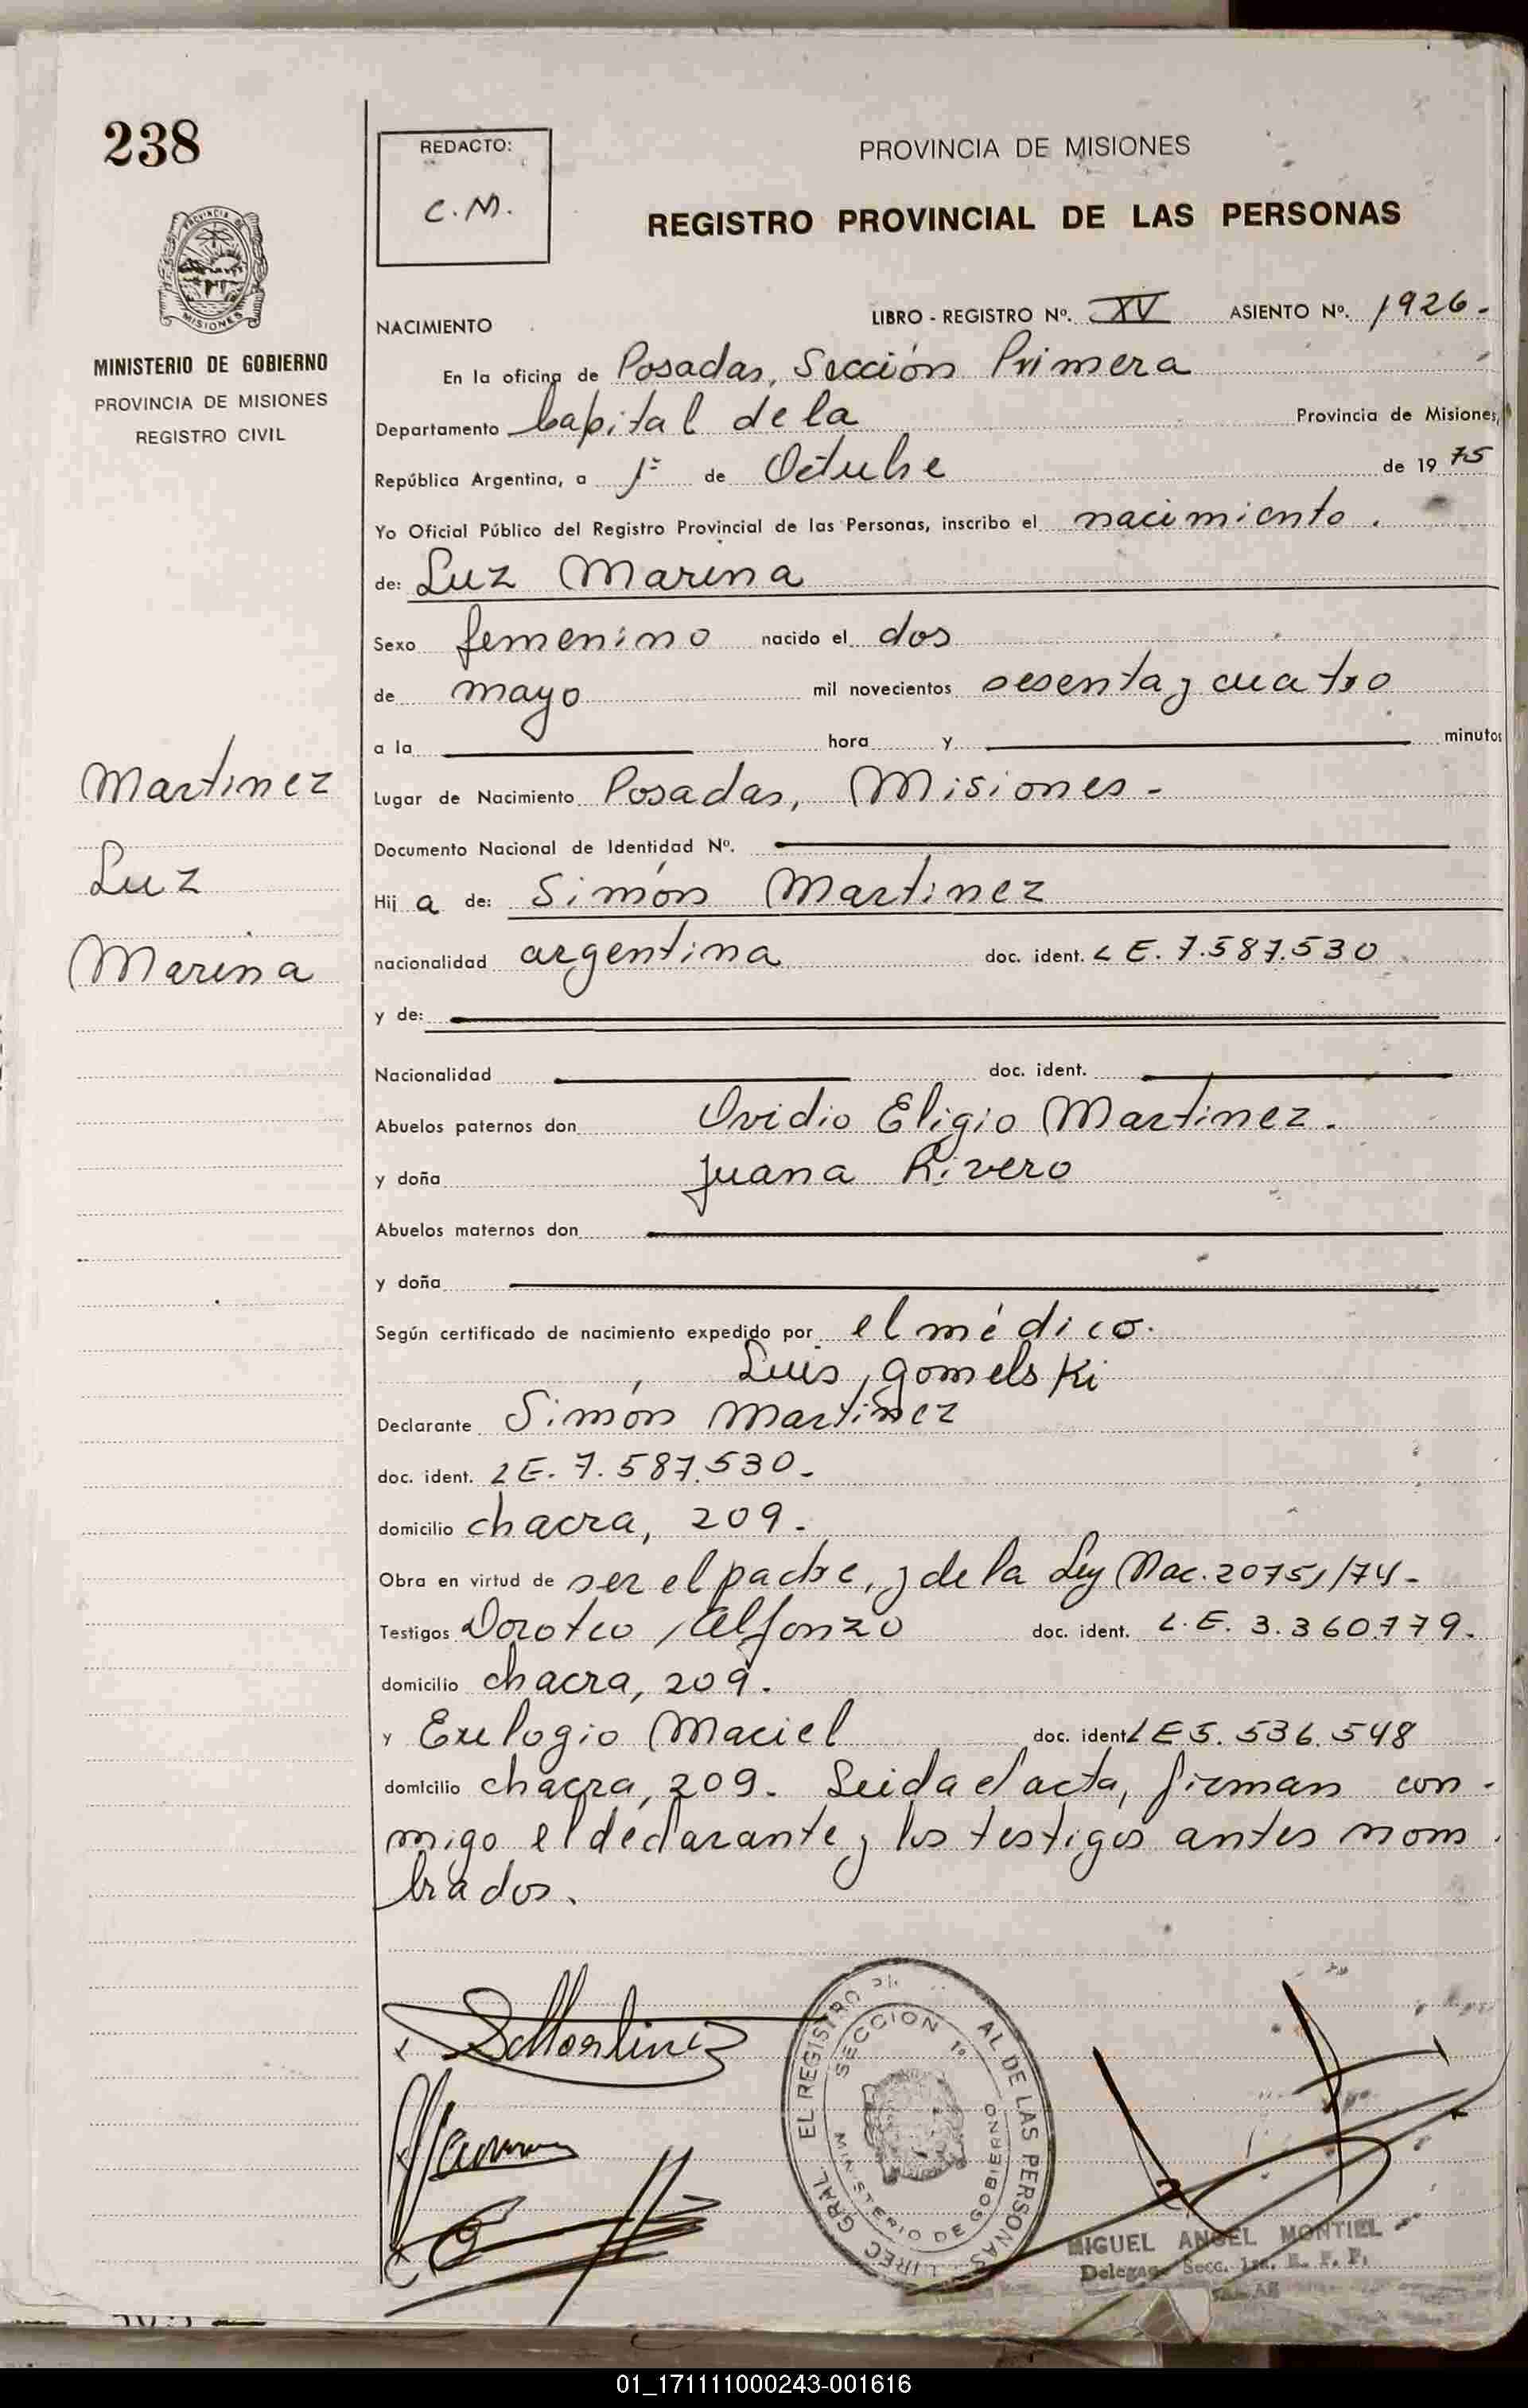 238
REDACTO:
C.M.
PROVINCIA DE MISIONES
REGISTRO PROVINCIAL DE LAS PERSONAS
MISIONES
MINISTERIO DE GOBIERNO
PROVINCIA DE MISIONES
REGISTRO CIVIL
NACIMIENTO LIBRO - REGISTRO Nº. XV ASIENTO Nº. 1926.-
En la oficina de Posadas, Sección Primera
Departamento Capital de la Provincia de Misiones,
República Argentina, a 1º de Octubre de 1975
Yo Oficial Público del Registro Provincial de las Personas, inscribo el nacimiento.
de: Luz Marina
Sexo femenino nacido el dos
de mayo mil novecientos sesenta y cuatro
a la hora y minutos
Martinez
Luz
Marina
Lugar de Nacimiento Posadas, Misiones -
Documento Nacional de Identidad Nº.
Hij a de: Simón Martinez
nacionalidad argentina doc. ident. L E. 7.587.530
y de:
Nacionalidad doc. ident.
Abuelos paternos don Ovidio Eligio Martinez.
y doña Juana Rivero
Abuelos maternos don
y doña
Según certificado de nacimiento expedido por el médico.
Luis Gomelski
Declarante Simón Martinez
doc. ident. L E. 7.587.530.
domicilio chacra, 209.
Obra en virtud de ser el padre, y de la Ley Nac. 20751/74-
Testigos Doroteo Alfonzo doc. ident. L.E. 3.360.779.
domicilio chacra, 209.
y Eulogio Maciel doc. ident L E 5.536.548
domicilio chacra, 209. Leida el acta, firman con-
migo el declarante y los testigos antes nom
brados.
SMartinez
EL REGISTRO AL DE LAS PERSONAS
DIREC GRAL.
SECCION 1º
MINISTERIO DE GOBIERNO
MIGUEL ANGEL MONTIEL
Secc. 1ra.
01_171111000243-001616